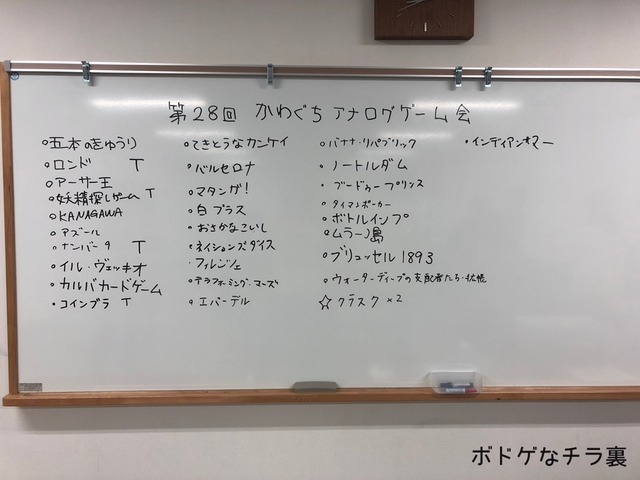 第28回 かわぐちアナログゲーム会
・五本のきゅうり
・ロンド T
・アーサー王
・妖精探しゲーム T
・KANAGAWA
・アズール
・ナンバー9 T
・イル・ヴェッキオ
・カルバカードゲーム
・コインブラ T
・てきとうなカンケイ
・バルセロナ
・マタンガ!
・白プラス
・おさかなこいし
・ネイションズダイス
・フィレンツェ
・テラフォーミング・マーズ
・エバーデル
・バナナ・リパブリック
・ノートルダム
・ブードゥープリンス
・タイマンポーカー
・ボトルインプ
・ムラーノ島
・ブリュッセル1893
・ウォーターディープの支配者たち・拡張
☆クラスク×2
・インディアンサマー
ボドゲなチラ裏